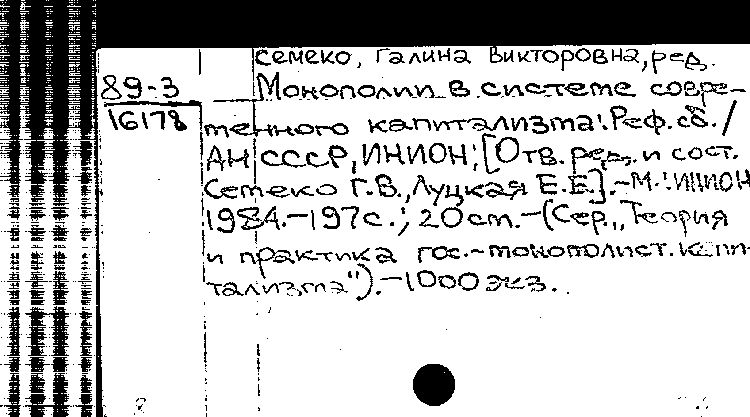 Семеко, Галина Викторовна, ред.
89-3
16178
Монополии в системе совре-
менного капитализма: Реф. сб. /
АН СССР, ИНИОН; [Отв. ред. и сост.
Семеко Г.В., Луцкая Е.Е.]. - М.: ИНИОН
1984. - 197 с.; 20 см. - (Сер. „Теория
и практика гос.-монополист. капи-
тализма"). - 1000 экз.